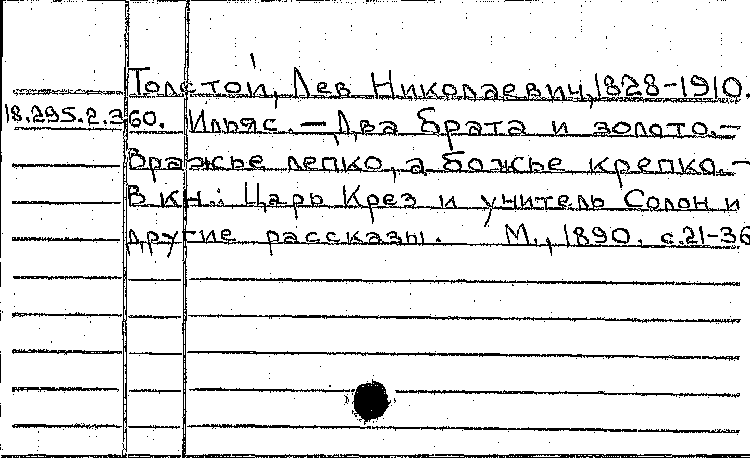 Толстой, Лев Николаевич, 1828-1910.
18.295.2.360. Ильяс. — Два брата и золото. —
Вражье лепко, а божье крепко. —
В кн.: Царь Крез и учитель Солон и
другие рассказы. М., 1890. с.21-36